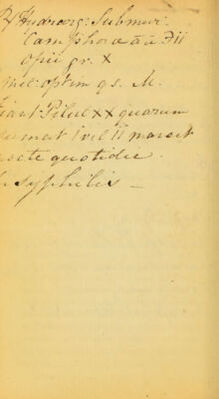 ℞ Hydrarg: Submur:
Camphoræ āā ʒii
Opii gr. X
Mel: optim q s. M.
Fiant Pilul XX quarum
mat i vel ii
quotidie.
syphilis —